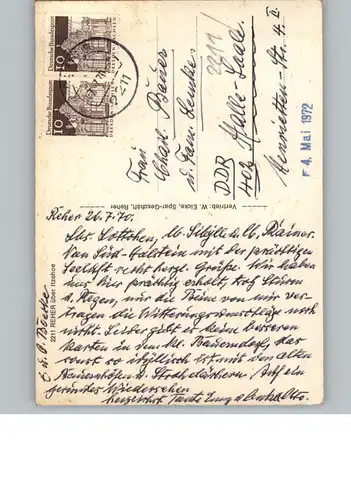 Deutsche Bundespost
10
Deutsche Bundespost
10
2211
Frau
Charl. Bauer
u. Fam. Lemke
DDR
402 Halle-Saale
Henrietten-Str. 4 I.
4. Mai 1972
Vertrieb: W. Eicke, Spar-Geschäft, Reher
2211 REHER über Itzehoe
Reher 26.7.70.
Lottchen, u. Rainer.
Von Süd-Holstein mit der prächtigen
Seeluft recht herzl. Grüße. Wir haben
uns hier prächtig erholt, trotz Stürmen
u. Regen, nur die Beine von mir ver-
tragen die Witterungs noch
nicht. Leider gibt es keine besseren
Karten in dem kl. Bauerndorf, das
sonst so idyllisch ist mit den alten
Bauernhöfen u. Strohdächern. Auf ein
gesundes Wiedersehen
herzlichst Tante u. Onkel Otto.